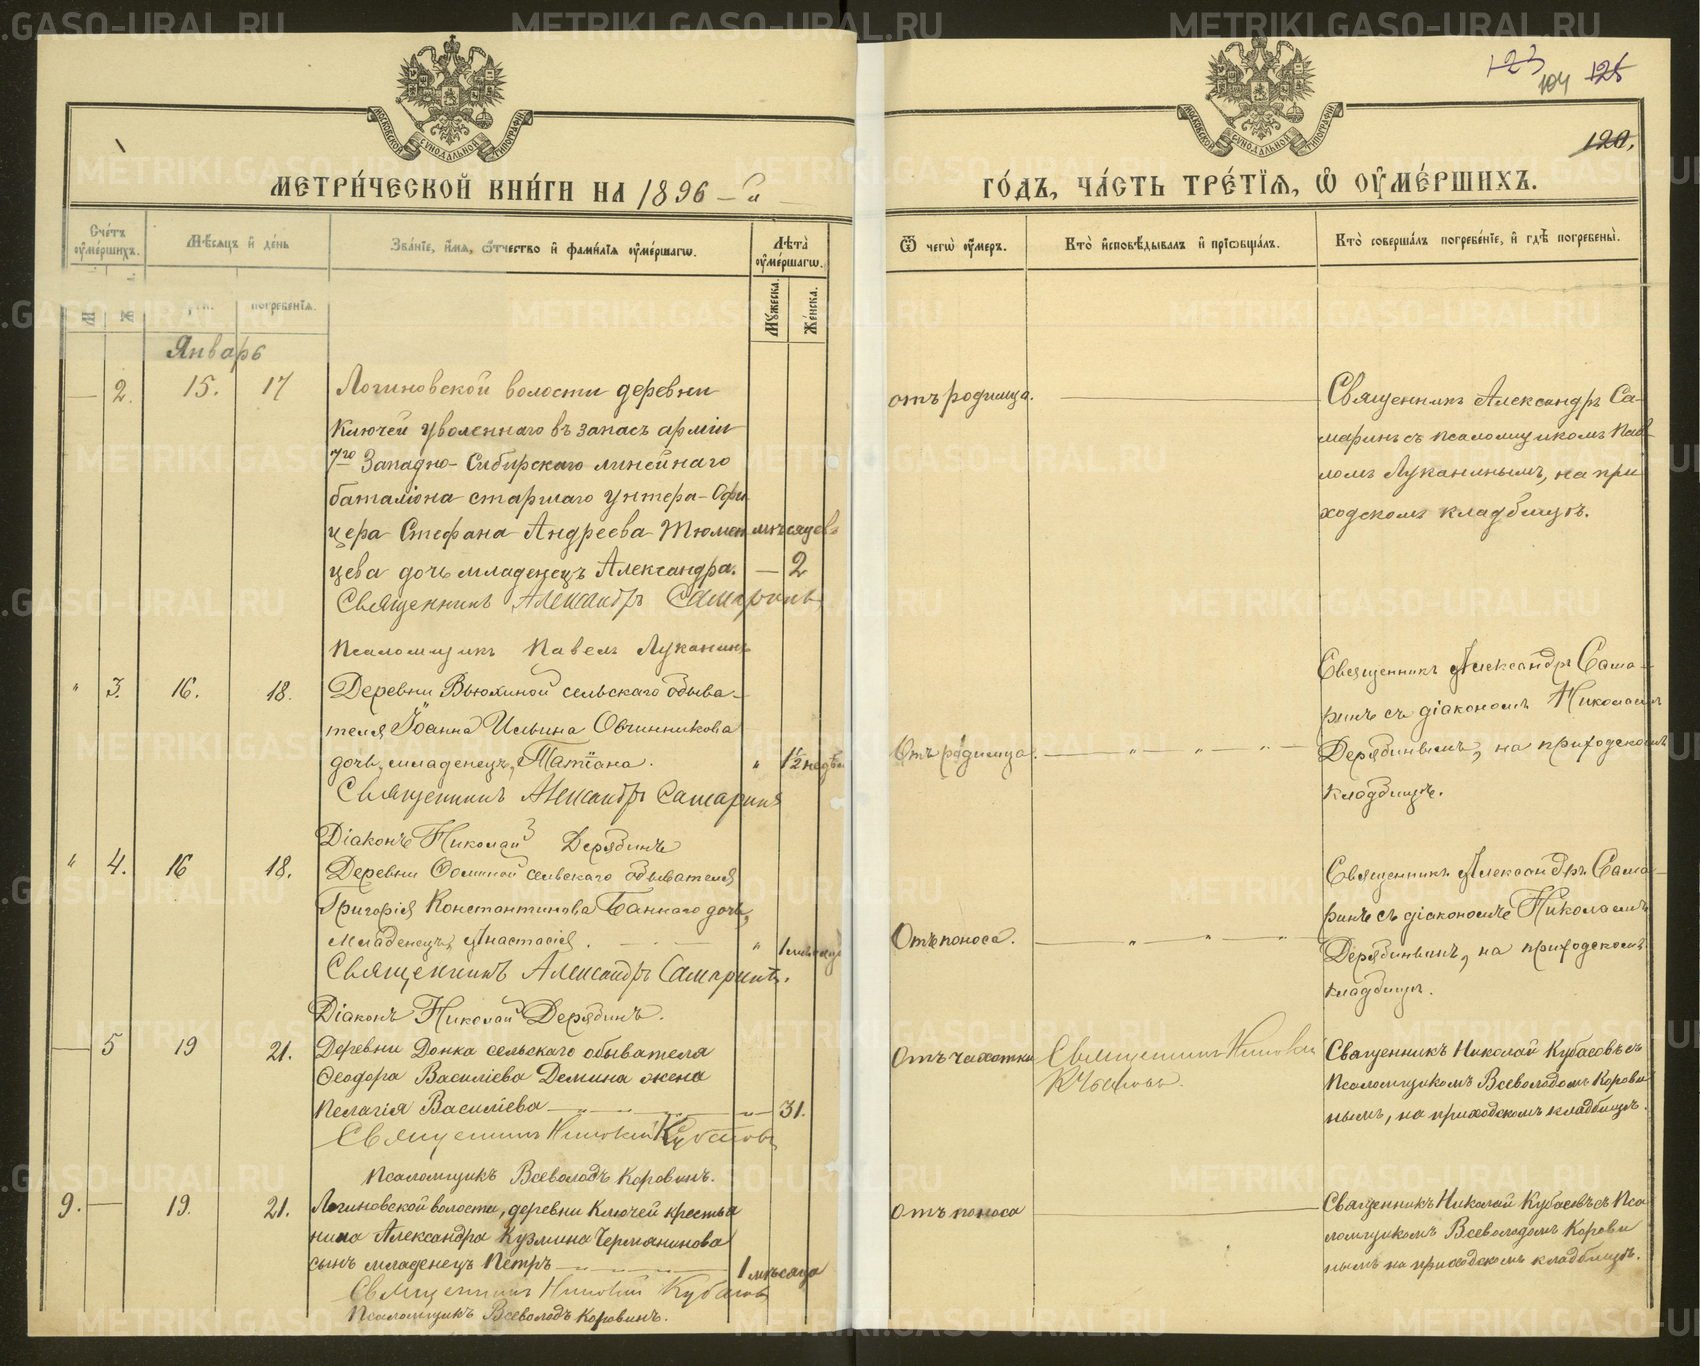 МЕТРИЧЕСКОЙ КНИГИ НА 1896-й
Счетъ умершихъ.
Мѣсяцъ и день
Званіе, имя, отчество и фамилія умершаго.
Лѣта умершаго.
М
Ж
погребенія.
Мужеска.
Женска.
Январь
— 2. 15. 17
Логиновской волости деревни
Ключей уволеннаго въ запасъ арміи
7го Западно-Сибирскаго линейнаго
баталіона старшаго унтера-Офи
цера Стефана Андреева Тюмен мѣсяцевъ
цева дочь младенецъ Александра. — 2
Священникъ Александръ Самаринъ
Псаломщикъ Павелъ Луканинъ
" 3. 16. 18.
Деревни Вьюхиной сельскаго обыва-
теля Іоанна Ильина Овчинникова
дочь, младенецъ, Татіана. " 1½ недѣли
Священникъ Александръ Самаринъ
Діаконъ Николай Дерябинъ
" 4. 16 18.
Деревни Фоминой сельскаго обывателя
Григорія Константинова Баннаго дочь,
младенецъ, Анастасія. " 1 мѣсяцъ
Священникъ Александръ Самаринъ.
Діаконъ Николай Дерябинъ.
— 5 19 21.
Деревни Донка сельскаго обывателя
Ѳеодора Василіева Демина жена
Пелагія Василіева — " — 31.
Священникъ Николай Кубасовъ
Псаломщикъ Всеволодъ Коровинъ.
9. — 19. 21.
Логиновской волости, деревни Ключей крестья
нина Александра Кузмина Чермянинова
сынъ младенецъ Петръ — 1 мѣсяца
Священникъ Николай Кубасовъ
Псаломщикъ Всеволодъ Коровинъ.
123 104 125
120.
ГОДЪ, ЧАСТЬ ТРЕТІЯ, Ѡ УМЕРШИХЪ.
Ѿ чегѡ умеръ.
Кто исповѣдывалъ и пріобщалъ.
Кто совершалъ погребеніе, и гдѣ погребены.
отъ родимца.
Священникъ Александръ Са-
маринъ съ псаломщикомъ Пав-
ломъ Луканинымъ, на при
ходскомъ кладбищѣ.
Отъ родимца.
Священникъ Александръ Сама-
ринъ съ діакономъ Николаемъ
Дерябинымъ, на приходскомъ
кладбищѣ.
Отъ поноса.
Священникъ Александръ Сама-
ринъ съ діакономъ Николаемъ
Дерябинымъ, на приходскомъ
кладбищѣ.
Отъ чахотки
Священникъ Николай
Кубасовъ.
Священникъ Николай Кубасовъ съ
Псаломщикомъ Всеволодомъ Корови
нымъ, на приходскомъ кладбищѣ.
отъ поноса
Священникъ Николай Кубасовъ съ Пса
ломщикомъ Всеволодомъ Корови
нымъ на приходскомъ кладбищѣ.
METRIKI.GASO-URAL.RU